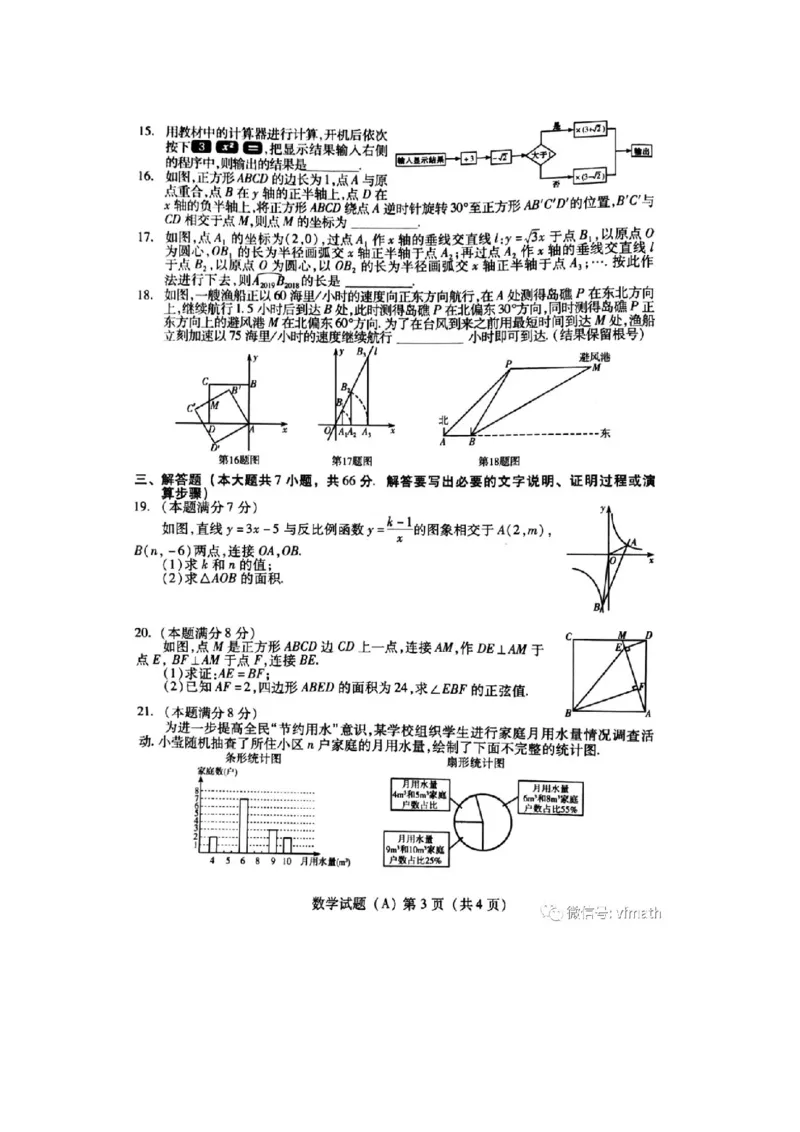 15. 用教材中的计算器进行计算,开机后依次
按下 3 x² = ,把显示结果输入右侧
的程序中,则输出的结果是______.
输入显示结果 ÷3 -√2 大于1 是 ×(3+√2) 否 ×(3-√2) 输出
16. 如图,正方形ABCD的边长为1,点A与原
点重合,点B在y轴的正半轴上,点D在
x轴的负半轴上,将正方形ABCD绕点A逆时针旋转30°至正方形AB'C'D'的位置,B'C'与
CD相交于点M,则点M的坐标为______.
17. 如图,点A₁的坐标为(2,0),过点A₁作x轴的垂线交直线l:y=√3x于点B₁,以原点O
为圆心,OB₁的长为半径画弧交x轴正半轴于点A₂;再过点A₂作x轴的垂线交直线l
于点B₂,以原点O为圆心,以OB₂的长为半径画弧交x轴正半轴于点A₃;….按此作
法进行下去,则A₂₀₁₉B₂₀₁₈的长是______.
18. 如图,一艘渔船正以60海里/小时的速度向正东方向航行,在A处测得岛礁P在东北方向
上,继续航行1.5小时后到达B处,此时测得岛礁P在北偏东30°方向,同时测得岛礁P正
东方向上的避风港M在北偏东60°方向.为了在台风到来之前用最短时间到达M处,渔船
立刻加速以75海里/小时的速度继续航行______小时即可到达.(结果保留根号)
y C B B' C' M D A x D'
y B₃ l B₂ B₁ O A₁ A₂ A₃ x
避风港 P M 北 A B 东
第16题图 第17题图 第18题图
三、解答题(本大题共7小题,共66分.解答要写出必要的文字说明、证明过程或演
算步骤)
19. (本题满分7分)
如图,直线y=3x-5与反比例函数y=(k-1)/x的图象相交于A(2,m),
B(n,-6)两点,连接OA,OB.
(1)求k和n的值;
(2)求△AOB的面积.
y A O x B
20. (本题满分8分)
如图,点M是正方形ABCD边CD上一点,连接AM,作DE⊥AM于
点E,BF⊥AM于点F,连接BE.
(1)求证:AE=BF;
(2)已知AF=2,四边形ABED的面积为24,求∠EBF的正弦值.
C M D E F B A
21. (本题满分8分)
为进一步提高全民“节约用水”意识,某学校组织学生进行家庭月用水量情况调查活
动.小莹随机抽查了所住小区n户家庭的月用水量,绘制了下面不完整的统计图.
条形统计图 扇形统计图
家庭数(户)
8
7
6
5
4
3
2
1
4 5 6 8 9 10 月用水量(m³)
月用水量
4m³和5m³家庭
户数占比
月用水量
6m³和8m³家庭
户数占比55%
月用水量
9m³和10m³家庭
户数占比25%
数学试题(A)第3页(共4页)
微信号: vfmath